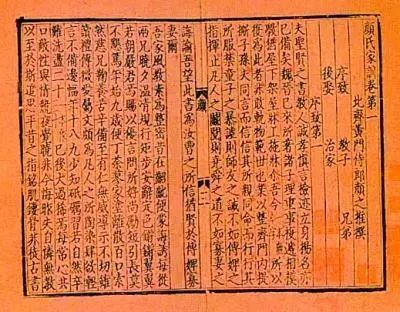 顔氏家訓卷第一
北齊黃門侍郎顔之推撰
序致 教子 兄弟
後娶 治家
序致第一
夫聖賢之書教人誠孝慎言檢迹立身揚名亦
已備矣魏晉已來所著諸子理重事複遞相模
斆猶屋下架屋牀上施牀介吾今所以
復為此者非敢軌物範世也業以整齊門内提
撕子孫夫同言而信信其所親同命而行行其
所服禁童子之暴謔則師友之誡不如傅婢之
指揮止凡人之鬭鬩則堯舜之道不如寡妻之
誨諭吾望此書為汝曹之所信猶賢於傅婢寡
妻爾
吾家風教素為整密昔在齠齔便蒙誨誘每從
兩兄曉夕温凊規行矩步安辭定色鏘鏘翼翼
若朝嚴君焉賜以優言問所好尚勵短引長莫
不懇篤年始九歲便丁荼蓼家塗離散百口索
然慈兄鞠養苦辛備至有仁無威導示不切雖
讀禮傳微愛屬文頗為凡人之所陶染肆欲輕
言不備邊幅年十八九少知砥礪習若自然卒
難洗盪二十已後大過稀焉每常心共
口敵性與情競夜覺曉非今悔昨失自憐無教
以至於斯追思平昔之指銘肌鏤骨非徒古書